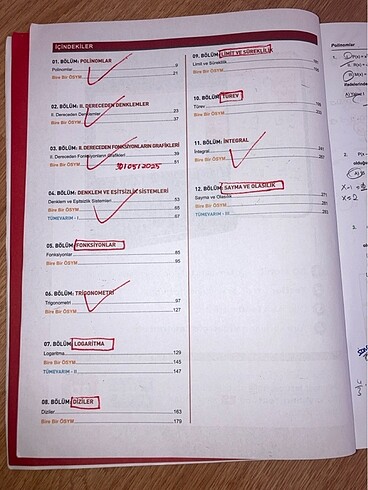 İÇİNDEKİLER
01. BÖLÜM: POLİNOMLAR
Polinomlar 9
Bire Bir ÖSYM 21
02. BÖLÜM: II. DERECEDEN DENKLEMLER
II. Dereceden Denklemler 23
Bire Bir ÖSYM 37
03. BÖLÜM: II. DERECEDEN FONKSİYONLARIN GRAFİKLERİ
II. Dereceden Fonksiyonların Grafikleri 39
Bire Bir ÖSYM 51
04. BÖLÜM: DENKLEM VE EŞİTSİZLİK SİSTEMLERİ
Denklem ve Eşitsizlik Sistemleri 53
Bire Bir ÖSYM 65
TÜMEVARIM - I 67
05. BÖLÜM: FONKSİYONLAR
Fonksiyonlar 85
Bire Bir ÖSYM 95
06. BÖLÜM: TRİGONOMETRİ
Trigonometri 97
Bire Bir ÖSYM 127
07. BÖLÜM: LOGARİTMA
Logaritma 129
Bire Bir ÖSYM 145
TÜMEVARIM - II 147
08. BÖLÜM: DİZİLER
Diziler 163
Bire Bir ÖSYM 179
09. BÖLÜM: LİMİT VE SÜREKLİLİK
Limit ve Süreklilik
Bire Bir ÖSYM
10. BÖLÜM: TÜREV
Türev
Bire Bir ÖSYM
11. BÖLÜM: İNTEGRAL
İntegral
Bire Bir ÖSYM
12. BÖLÜM: SAYMA VE OLASILIK
Sayma ve Olasılık 271
Bire Bir ÖSYM 281
TÜMEVARIM - III
Polinomlar
1.
2.
3.